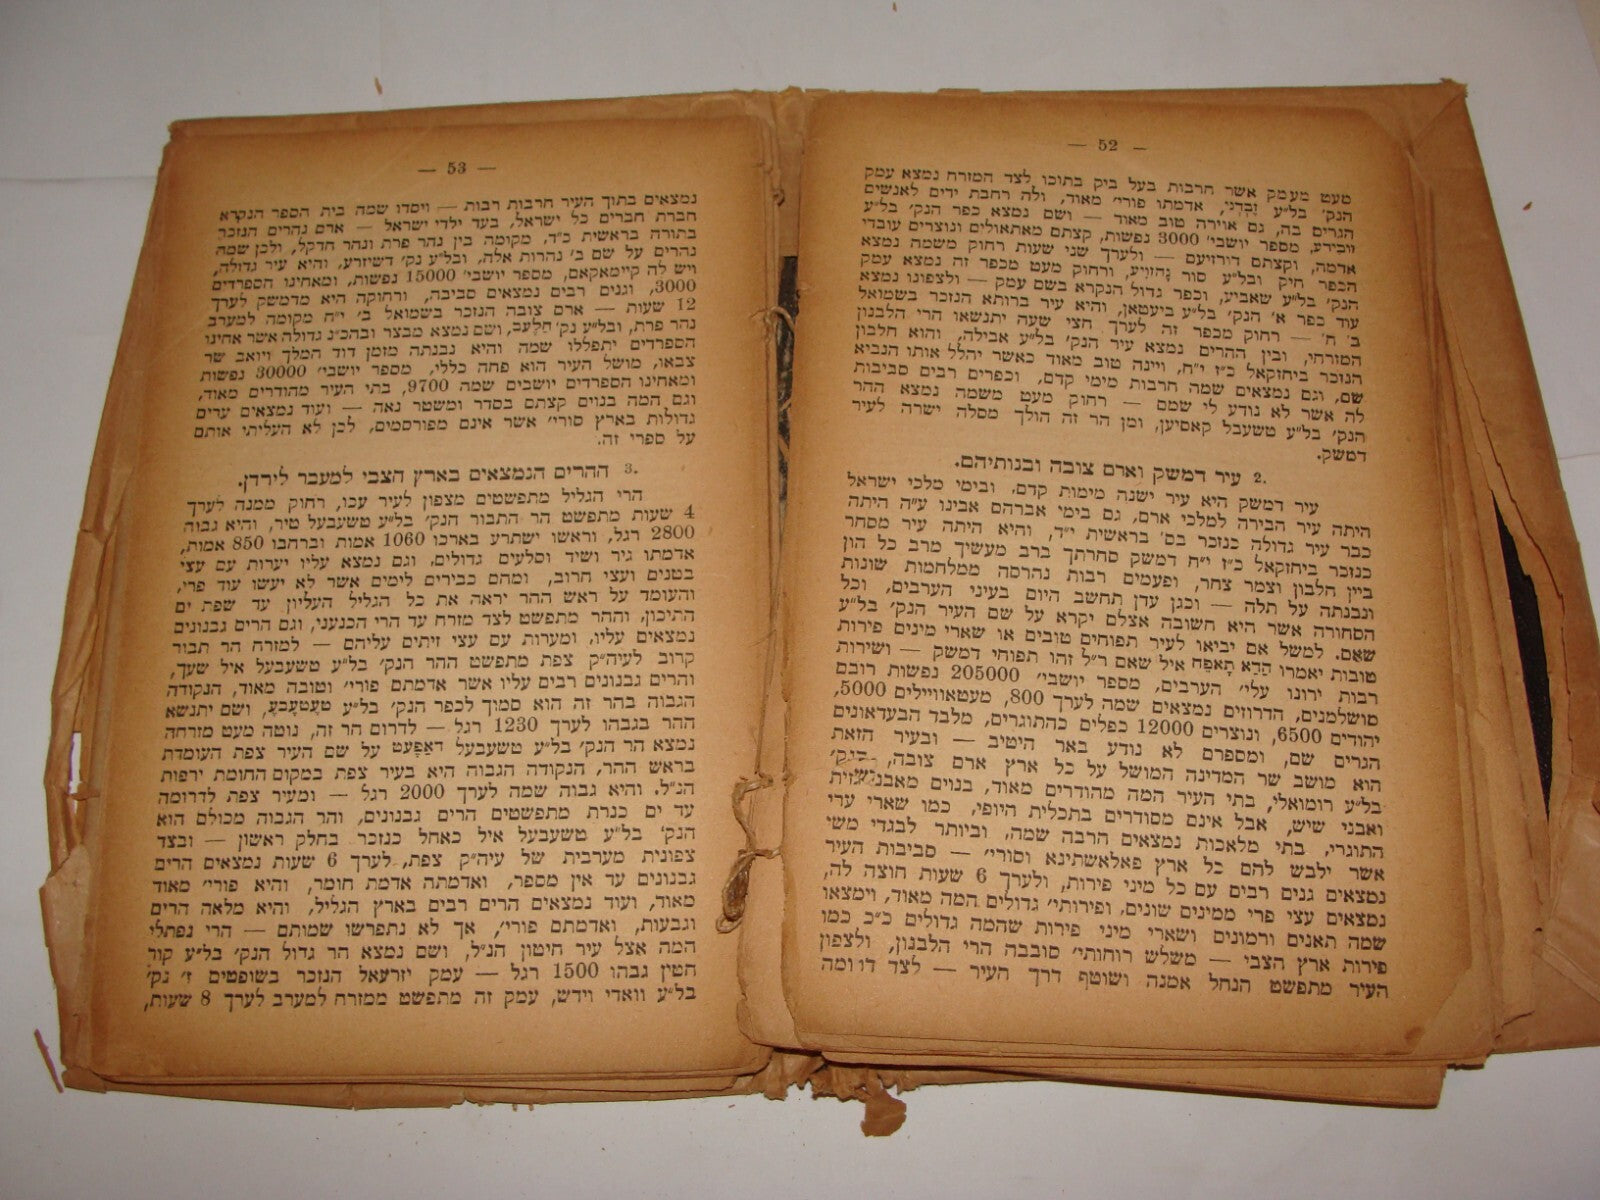 — 52 —
מעט מעמק אשר חרבות בעל ביק בתוכו לצד המזרח נמצא עמק
הנק׳ בל״ע זבדני, אדמתו פורי׳ מאוד, ולה רחבת ידים לאנשים
הגרים בה, גם אוירה טוב מאוד — ושם נמצא כפר הנק׳ בל״ע
מספר יושבי׳ 3000 נפשות, קצתם מאתאולים ונוצרים עובדי
אדמה, וקצתם דורזיעם — ולערך שני שעות רחוק משמה נמצא
הכפר חיק ובל״ע סור ורחוק מעט מכפר זה נמצא עמק
הנק׳ בל״ע שאביע, וכפר גדול הנקרא בשם עמק — ולצפונו נמצא
עוד כפר א׳ הנק׳ בל״ע ביעטאן, והיא עיר ברותא הנזכר בשמואל
ב׳ ח׳ — רחוק מכפר זה לערך חצי שעה יתנשאו הרי הלבנון
המזרחי, ובין ההרים נמצא עיר הנק׳ בל״ע אבילה, והוא חלבון
הנזכר ביחזקאל כ״ז י״ח, ויינה טוב מאוד כאשר יהלל אותו הנביא
שם, וגם נמצאים שמה חרבות מימי קדם, וכפרים רבים סביבות
לה אשר לא נודע לי שמם — רחוק מעט משמה נמצא ההר
הנק׳ בל״ע טשעבל קאסיען, ומן הר זה הולך מסלה ישרה לעיר
דמשק.
2. עיר דמשק וארם צובה ובנותיהם.
עיר דמשק היא עיר ישנה מימות קדם, ובימי מלכי ישראל
היתה עיר הבירה למלכי ארם, גם בימי אברהם אבינו ע״ה היתה
כבר עיר גדולה כנזכר בס׳ בראשית י״ד, והיא היתה עיר מסחר
כנזכר ביחזקאל כ״ז י״ח דמשק סחרתך ברב מעשיך מרב כל הון
ביין חלבון וצמר צחר, ופעמים רבות נהרסה ממלחמות שונות
ונבנתה על תלה — וכגן עדן תחשב היום בעיני הערבים, וכל
הסחורה אשר היא חשובה אצלם יקרא על שם העיר הנק׳ בל״ע
שאם. למשל אם יביאו לעיר תפוחים טובים או שארי מינים פירות
טובות יאמרו הדא תאפח איל שאם ר״ל זהו תפוחי דמשק — ושירות
רבות ירונו עלי׳ הערבים, מספר יושבי׳ 205000 נפשות רובם
מושלמנים, הדרוזים נמצאים שמה לערך 800, מעטאוויילים 5000,
יהודים 6500, ונוצרים 12000 כפלים כהתוגרים, מלבד הבעדאונים
הגרים שם, ומספרם לא נודע באר היטיב — ובעיר הזאת
הוא מושב שר המדינה המושל על כל ארץ ארם צובה,
בל״ע רומאולי, בתי העיר המה מהודרים מאוד, בנוים מאבני גזית
ואבני שיש, אבל אינם מסודרים בתכלית היופי, כמו שארי ערי
התוגרי, בתי מלאכות נמצאים הרבה שמה, וביותר לבגדי משי
אשר ילבש להם כל ארץ פאלאשתינא וסורי׳ — סביבות העיר
נמצאים גנים רבים עם כל מיני פירות, ולערך 6 שעות חוצה לה,
נמצאים עצי פרי ממינים שונים, ופירותי׳ גדולים המה מאוד, וימצאו
שמה תאנים ורמונים ושארי מיני פירות שהמה גדולים כ״כ כמו
פירות ארץ הצבי — משלש רוחותי׳ סובבה הרי הלבנון, ולצפון
העיר מתפשט הנחל אמנה ושוטף דרך העיר — לצד דרומה
— 53 —
נמצאים בתוך העיר חרבות רבות — ויסדו שמה בית הספר הנקרא
חברת חברים כל ישראל, בעד ילדי ישראל — אדם נהרים הנזכר
בתורה בראשית כ״ד, מקומה בין נהר פרת ונהר חדקל, ולכן שמה
נהרים על שם ב׳ נהרות אלה, ובל״ע נק׳ דשיזרע, והיא עיר גדולה,
ויש לה קיימאקאם, מספר יושבי׳ 15000 נפשות, ומאחינו הספרדים
3000, וגנים רבים נמצאים סביבה, ורחוקה היא מדמשק לערך
12 שעות — ארם צובה הנזכר בשמואל ב׳ י״ח מקומה למערב
נהר פרת, ובל״ע נק׳ חלעב, ושם נמצא מבצר ובהכ״נ גדולה אשר אחינו
הספרדים יתפללו שמה והיא נבנתה מזמן דוד המלך ויואב שר
צבאו, מושל העיר הוא פחה כללי, מספר יושבי׳ 30000 נפשות
ומאחינו הספרדים יושבים שמה 9700, בתי העיר מהודרים מאוד,
וגם המה בנוים קצתם בסדר ומשטר נאה — ועוד נמצאים ערים
גדולות בארץ סורי׳ אשר אינם מפורסמים, לכן לא העליתי אותם
על ספרי זה.
3. ההרים הנמצאים בארץ הצבי למעבר לירדן.
הרי הגליל מתפשטים מצפון לעיר עכו, רחוק ממנה לערך
4 שעות מתפשט הר התבור הנק׳ בל״ע טשעבעל טיר, והיא גבוה
2800 רגל, וראשו ישתרע בארכו 1060 אמות וברחבו 850 אמות,
אדמתו גיר ושיד וסלעים גדולים, וגם נמצא עליו יערות עם עצי
בטנים ועצי חרוב, ומהם כבירים לימים אשר לא יעשו עוד פרי,
והעומד על ראש ההר יראה את כל הגליל העליון עד שפת ים
התיכון, וההר מתפשט לצד מזרח עד הרי הכנעני, וגם הרים גבנונים
נמצאים עליו, ומערות עם עצי זיתים עליהם — למזרח הר תבור
קרוב לעיה״ק צפת מתפשט ההר הנק׳ בל״ע טשעבעל איל שעך,
והרים גבנונים רבים עליו אשר אדמתם פורי׳ וטובה מאוד, הנקודה
הגבוה בהר זה הוא סמוך לכפר הנק׳ בל״ע ושם יתנשא
ההר בגבהו לערך 1230 רגל — לדרום הר זה, נוטה מעט מזרחה
נמצא הר הנק׳ בל״ע טשעבעל דאפעט על שם העיר צפת העומדת
בראש ההר, הנקודה הגבוה היא בעיר צפת במקום החומת ירפות
הנ״ל. והיא גבוה שמה לערך 2000 רגל — ומעיר צפת לדרומה
עד ים כנרת מתפשטים הרים גבנונים, והר הגבוה מכולם הוא
הנק׳ בל״ע טשעבעל איל כאחל כנזכר בחלק ראשון — ובצד
צפונית מערבית של עיה״ק צפת, לערך 6 שעות נמצאים הרים
גבנונים עד אין מספר, ואדמתה אדמת חומר, והיא פורי׳ מאוד
מאוד, ועוד נמצאים הרים רבים בארץ הגליל, והיא מלאה הרים
וגבעות, ואדמתם פורי׳, אך לא נתפרשו שמותם — הרי נפתלי
המה אצל עיר חיטון הנ״ל, ושם נמצא הר גדול הנק׳ בל״ע קור
חטין גבהו 1500 רגל — עמק יזרעאל הנזכר בשופטים ז׳ נק׳
בל״ע וואדי וידש, עמק זה מתפשט ממזרח למערב לערך 8 שעות,